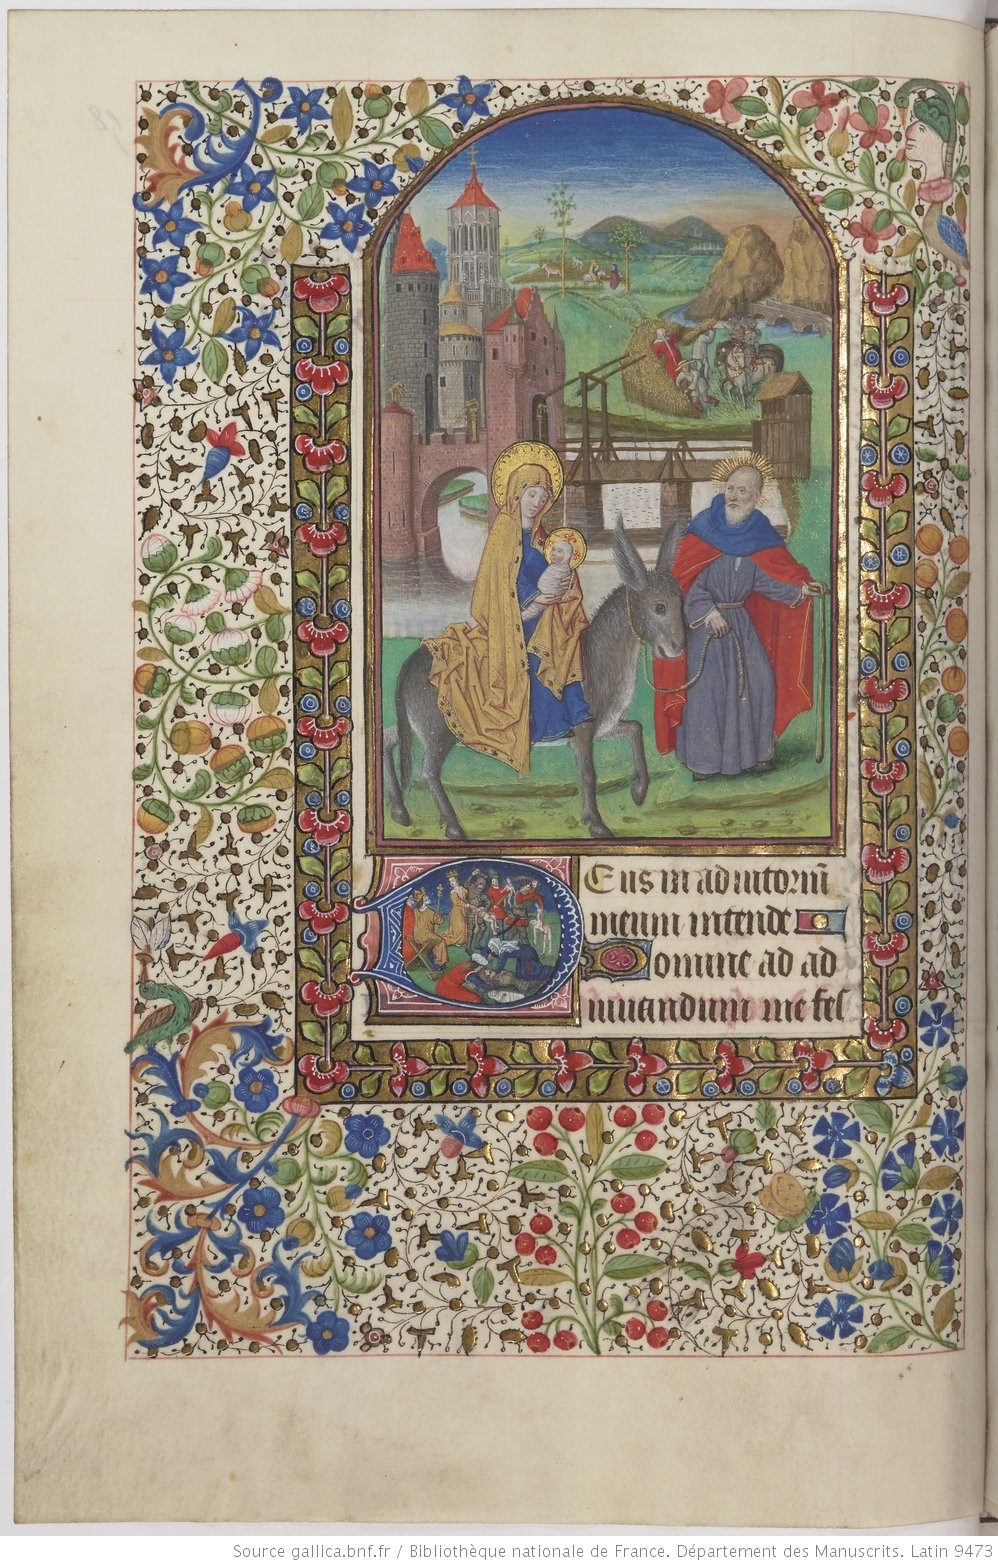 Deus in adiutoriū
meum intende
Domine ad ad
iuuandum me fes
Source gallica.bnf.fr / Bibliothèque nationale de France. Département des Manuscrits. Latin 9473